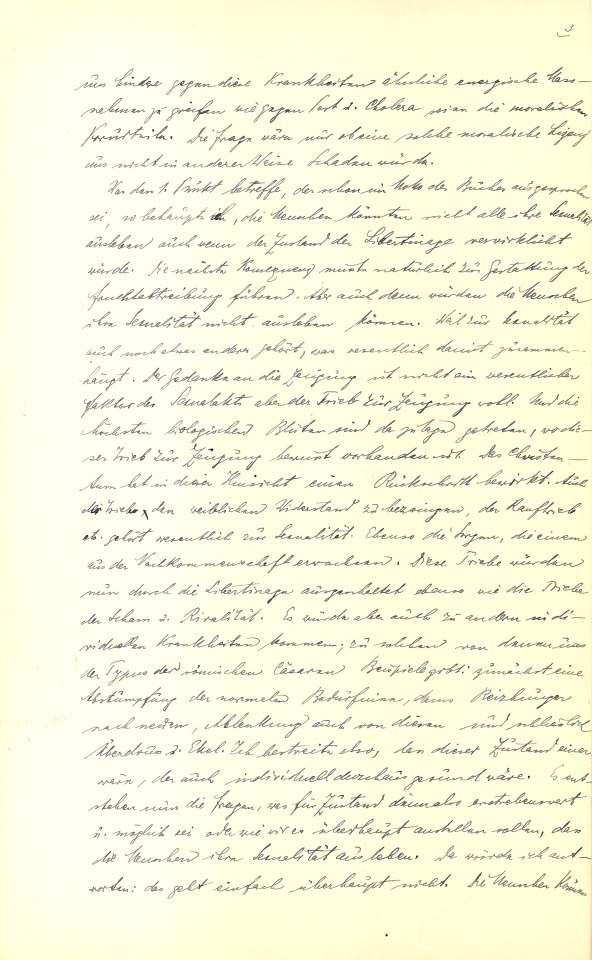 3
uns hindere gegen diese Krankheiten ähnliche energische Mass-
nahmen zu greifen wie gegen Pest u. Cholera seien die moralischen
Vorurteile. Die Frage wäre nur ob eine solche moralische
uns nicht in anderer Weise Schaden würde.
Was den 1. Punkt betreffe, der schon im Motto des Buches ausgesprochen
sei, so behaupte ich, die Menschen könnten nicht alle ihre Sexualität
ausleben auch wenn der Zustand der Libertinage verwirklicht
würde. Die nächste Konsequenz müsste natürlich zur Gestattung der
Fruchtabtreibung führen. Aber auch dann würden die Menschen
ihre Sexualität nicht ausleben können. Weil zur Sexualität
auch noch etwas anderes gehört, was wesentlich damit zusammen-
hängt. Der Gedanke an die Zeugung ist nicht ein wesentlicher
Faktor des Sexualakts aber der Trieb zur Zeugung wohl. Und die
höchsten biologischen Blüten sind da zutage getreten, wo die-
ser Trieb zur Zeugung bewusst vorhanden ist. Das Christen-
tum hat in dieser Hinsicht einen Rückschritt bewirkt. Auch
der Trieb, den weiblichen Widerstand zu bezwingen, der Rauftrieb
etc. gehört wesentlich zur Sexualität. Ebenso die Sorgen, die einem
aus der Nachkommenschaft erwachsen. Diese Triebe würden
nun durch die Libertinage ausgeschaltet ebenso wie die Triebe
der Scham u. Rivalität. Es würde aber auch zu andern indi-
viduellen Krankheiten kommen; zu solchen von denen uns
der Typus der römischen Cäsaren Beispiele gebe: zunächst eine
Abstumpfung der normalen Bedürfnisse, dann Reizhunger
nach neuen, Ablenkung auch von diesen und schliesslich
Überdruss u. Ekel. Ich bestreite also, dass dieser Zustand einer
wäre, der auch individuell durchaus gesund wäre. Es ent-
stehen nun die Fragen, was für Zustand dann also erstrebenswert
u. möglich sei oder wie wir es überhaupt anstellen sollen, dass
die Menschen ihre Sexualität ausleben. Da würde ich ant-
worten: das geht einfach überhaupt nicht. Die Menschen können